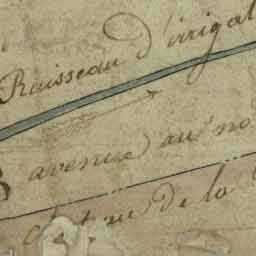 Ruisseau d'irrigat
avenue au no
de la